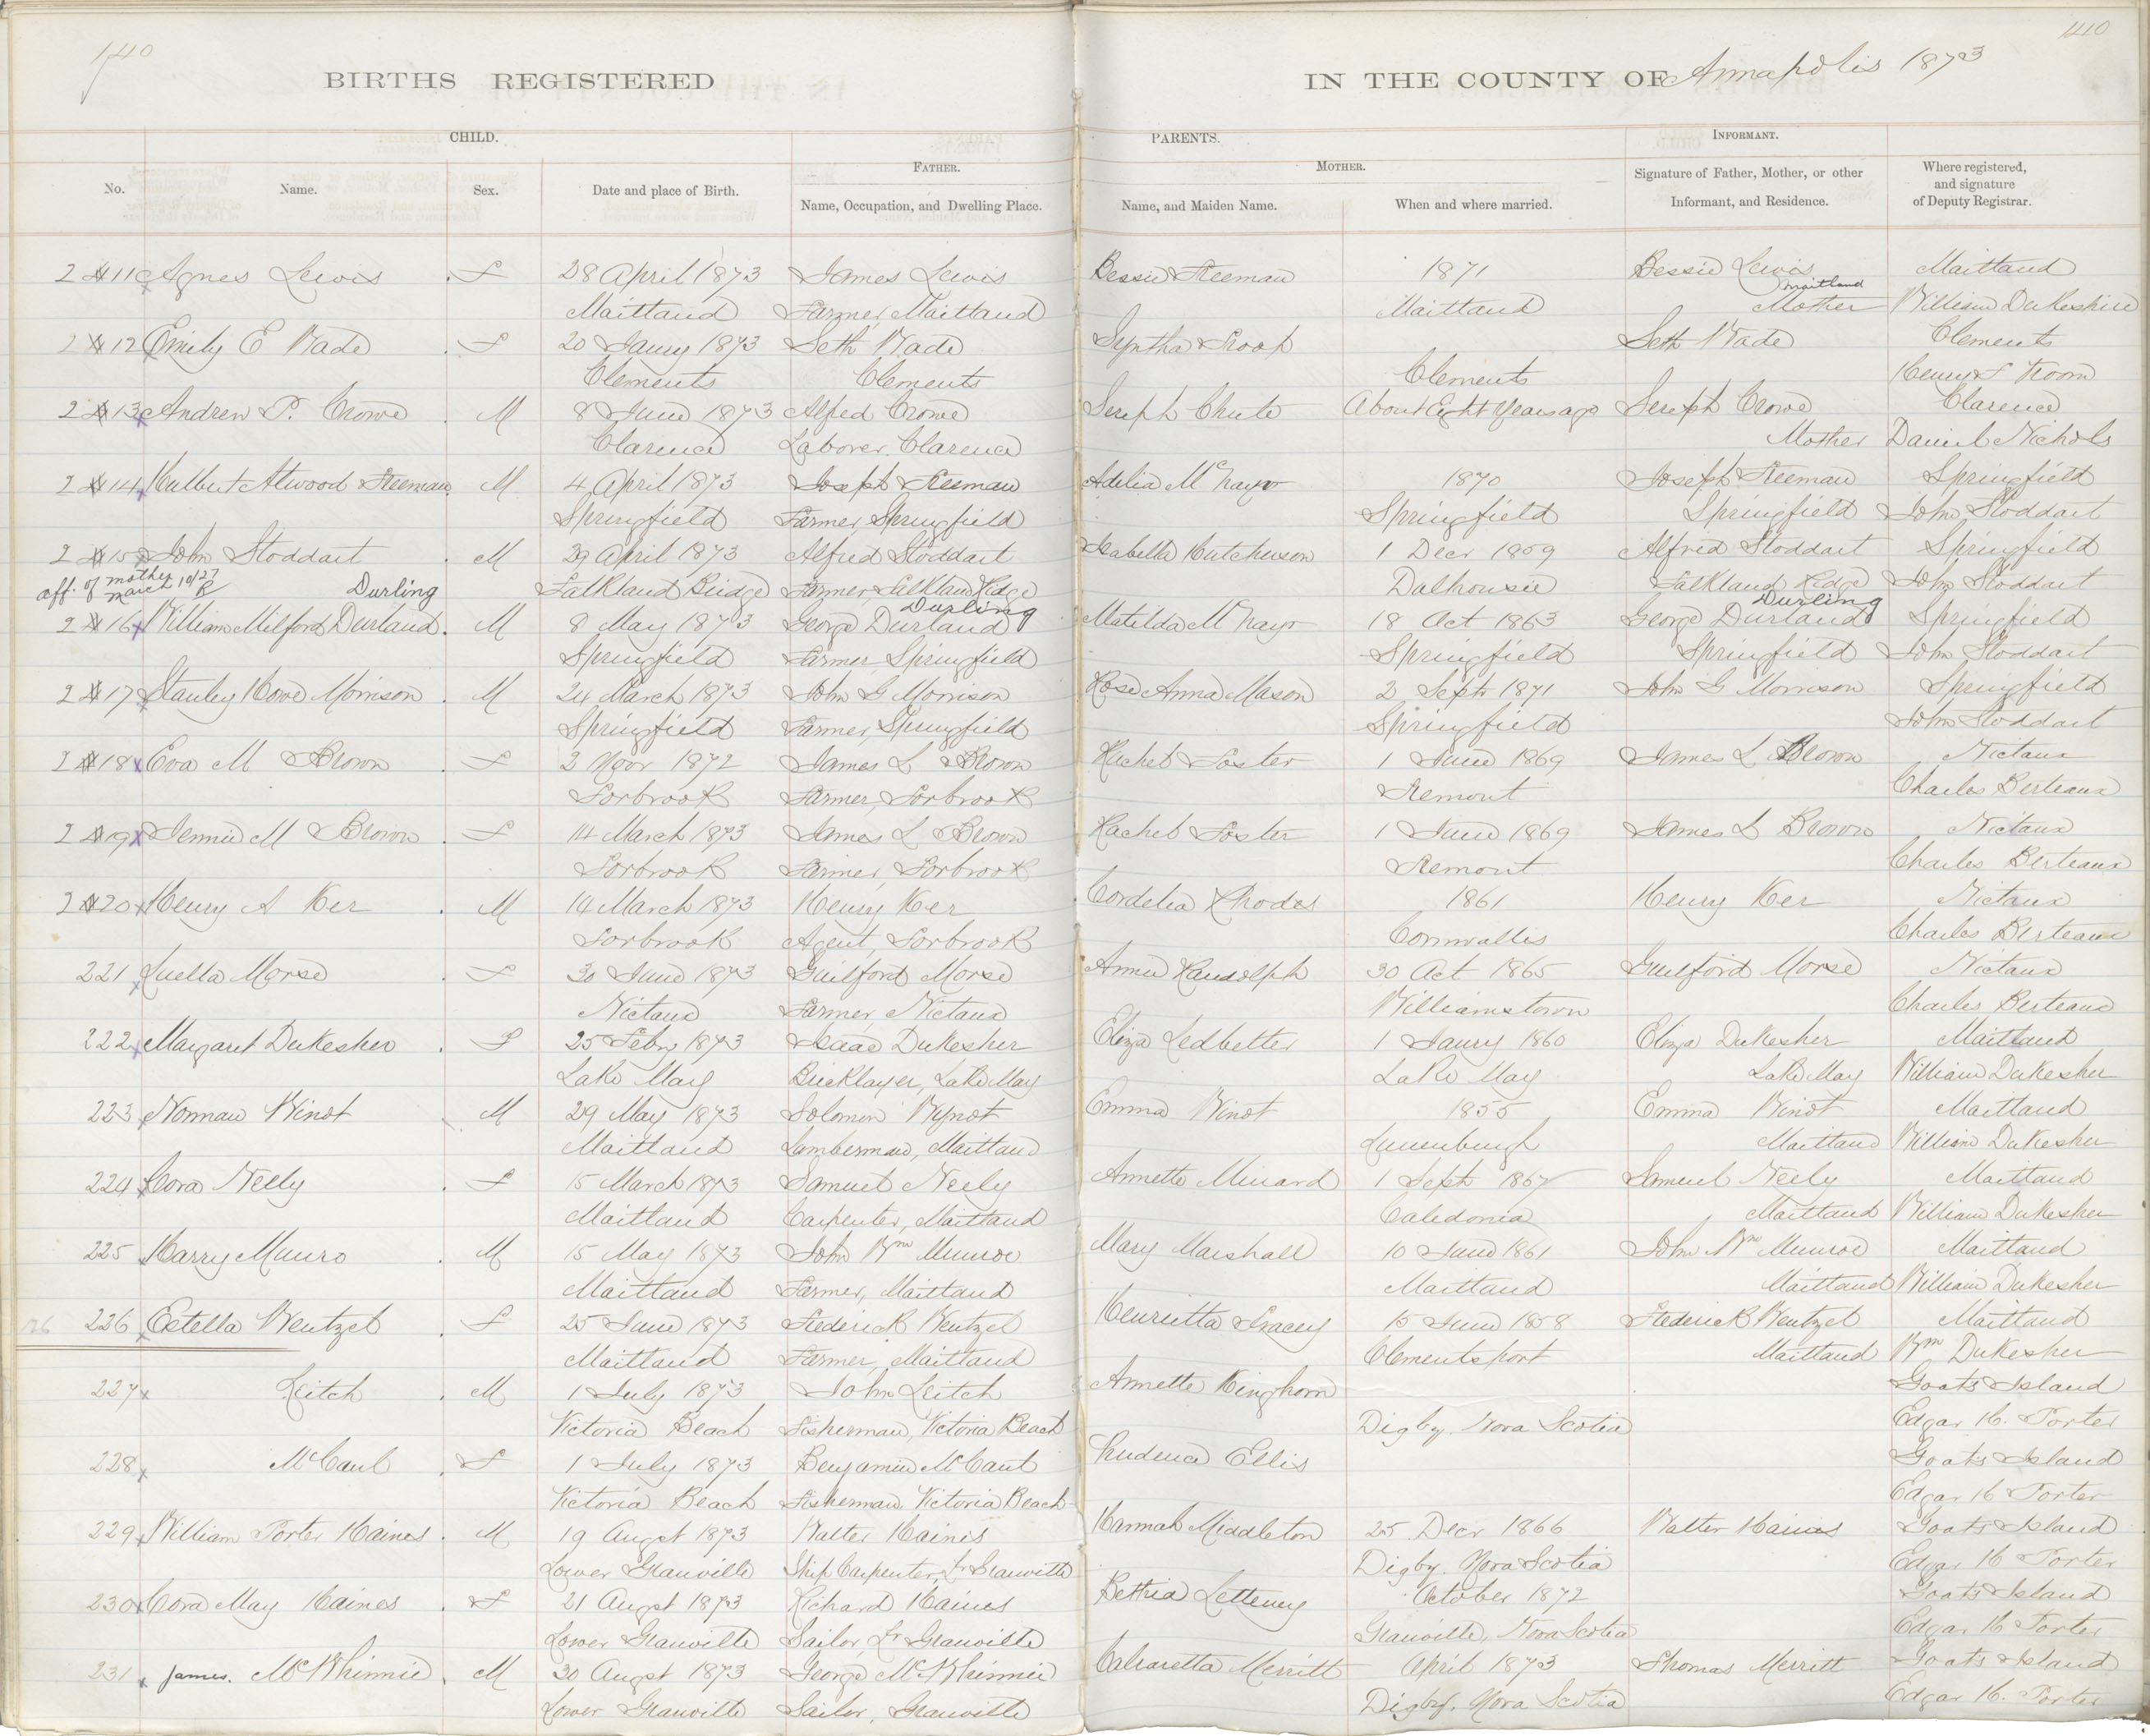 140
140
BIRTHS REGISTERED IN THE COUNTY OF Annapolis 1873
CHILD. PARENTS. INFORMANT.
FATHER. MOTHER.
No. Name. Sex. Date and place of Birth. Name, Occupation, and Dwelling Place. Name, and Maiden Name. When and where married. Signature of Father, Mother, or other Informant, and Residence. Where registered, and signature of Deputy Registrar.
211 Agnes Lewis F 28 April 1873 James Lewis Bessie Freeman 1871 Bessie Lewis Maitland
Maitland Farmer, Maitland Maitland Maitland Mother William Dukeshire
212 Emily E Wade F 20 Jany 1873 Seth Wade Syntha Troop Seth Wade Clements
Clements Clements Clements Henry F Vroom
213 Andrew P. Crowe M 8 June 1873 Alfred Crowe Sereph Chute About Eight Years ago Sereph Crowe Clarence
Clarence Laborer. Clarence Mother Daniel Nichols
214 Hulbert Atwood Freeman M 4 April 1873 Joseph Freeman Adelia McNayr 1870 Joseph Freeman Springfield
Springfield Farmer, Springfield Springfield Springfield John Stoddart
215 John Stoddart M 29 April 1873 Alfred Stoddart Isabella Hutchinson 1 Decr 1859 Alfred Stoddart Springfield
aff. of mother March 10/27 Falkland Bridge Farmer, Falkland Ridge Dalhousie Falkland Ridge John Stoddart
Durling Durling Durling
216 William Milford Durland M 8 May 1873 George Durland Matilda McNayr 18 Oct 1863 George Durland Springfield
Springfield Farmer Springfield Springfield Springfield John Stoddart
217 Stanley Howe Morrison M 24 March 1873 John G Morrison Rose Anna Mason 2 Sept 1871 John G Morrison Springfield
Springfield Farmer, Springfield Springfield John Stoddart
218 Eva M Brown F 3 Novr 1872 James L Brown Rachel Foster 1 June 1869 James L Brown Nictaux
Torbrook Farmer, Torbrook Tremont Charles Berteaux
219 Jennie M Brown F 14 March 1873 James L Brown Rachel Foster 1 June 1869 James L Brown Nictaux
Torbrook Farmer, Torbrook Tremont Charles Berteaux
220 Henry A Ker M 14 March 1873 Henry Ker Cordelia Rhodes 1861 Henry Ker Nictaux
Torbrook Agent, Torbrook Cornwallis Charles Berteaux
221 Luella Morse F 30 June 1873 Guilford Morse Annie Randolph 30 Oct 1865 Guilford Morse Nictaux
Nictaux Farmer, Nictaux Williamstown Charles Berteaux
222 Margaret Dukesher F 25 Feby 1873 Isaac Dukesher Eliza Ledbetter 1 Jany 1860 Eliza Dukesher Maitland
Lake May Bricklayer, Lake May Lake May Lake May William Dukesher
223 Norman Winot M 29 May 1873 Solomon Wynot Emma Winot 1855 Emma Winot Maitland
Maitland Lumberman, Maitland Lunenburgh Maitland William Dukesher
224 Cora Neely F 15 March 1873 Samuel Neely Annette Minard 1 Sept 1867 Samuel Neely Maitland
Maitland Carpenter, Maitland Caledonia Maitland William Dukesher
225 Harry Munro M 15 May 1873 John Wm Munroe Mary Marshall 10 June 1861 John Wm Munroe Maitland
Maitland Farmer, Maitland Maitland Maitland William Dukesher
226 Estella Wentzel F 25 June 1873 Frederick Wentzel Henrietta Tracey 15 June 1858 Frederick Wentzel Maitland
Maitland Farmer, Maitland Clementsport Maitland Wm Dukesher
227 Leitch M 1 July 1873 John Leitch Annette Kinghorn Goats Island
Victoria Beach Fisherman, Victoria Beach Digby, Nova Scotia Edgar H. Porter
228 McCaul F 1 July 1873 Benjamin McCaul Prudence Ellis Goats Island
Victoria Beach Fisherman, Victoria Beach Edgar H Porter
229 William Porter Haines M 19 Augst 1873 Walter Haines Hannah Middleton 25 Decr 1866 Walter Haines Goats Island
Lower Granville Ship Carpenter, Lr Granville Digby. Nova Scotia Edgar H Porter
230 Cora May Haines F 21 Augst 1873 Richard Haines Bethia Letteney October 1872 Goats Island
Lower Granville Sailor, Lr Granville Granville, Nova Scotia Edgar H Porter
231 James. McWhinnie M 30 Augst 1873 George McWhinnie Calvaretta Merritt April 1873 Thomas Merritt Goats Island
Lower Granville Sailor, Granville Digby, Nova Scotia Edgar H. Porter